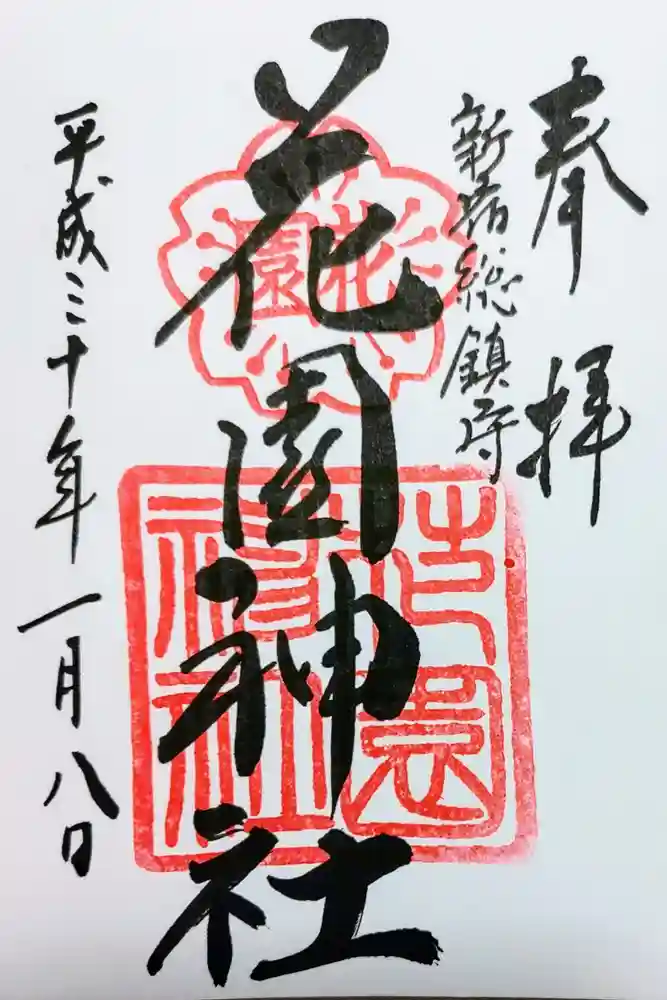 奉拝
新宿総鎮守
花園神社
花園
花園神社
平成三十年一月八日